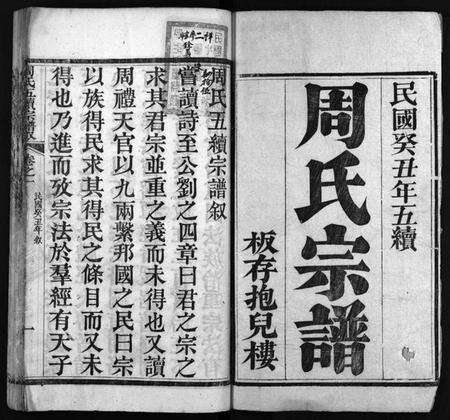 民國癸丑年五續
周氏宗譜
板存抱兒樓
周氏五續宗譜叙
嘗讀詩至公劉之四章曰君之宗之
求其君宗並重之義而未得也又讀
周禮天官以九兩繫邦國之民曰宗
以族得民求其得民之條目而又未
得也乃進而攷宗法於羣經有天子
周氏五續宗譜 卷之一 民國癸丑年叙 一